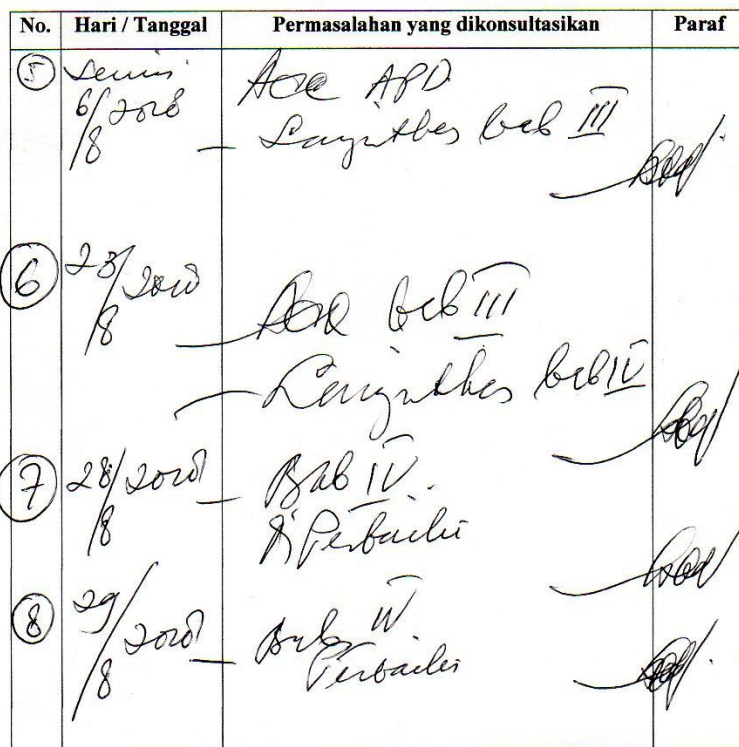 No. Hari / Tanggal Permasalahan yang dikonsultasikan Paraf
5 Senin 6/8 2018 Acc APD
- Lanjutkan bab III
6 23/8 2018 - Acc bab III
- Lanjutkan bab IV
7 28/8 2018 - Bab IV.
diPerbaiki
8 29/8 2018 - Bab IV
Perbaiki